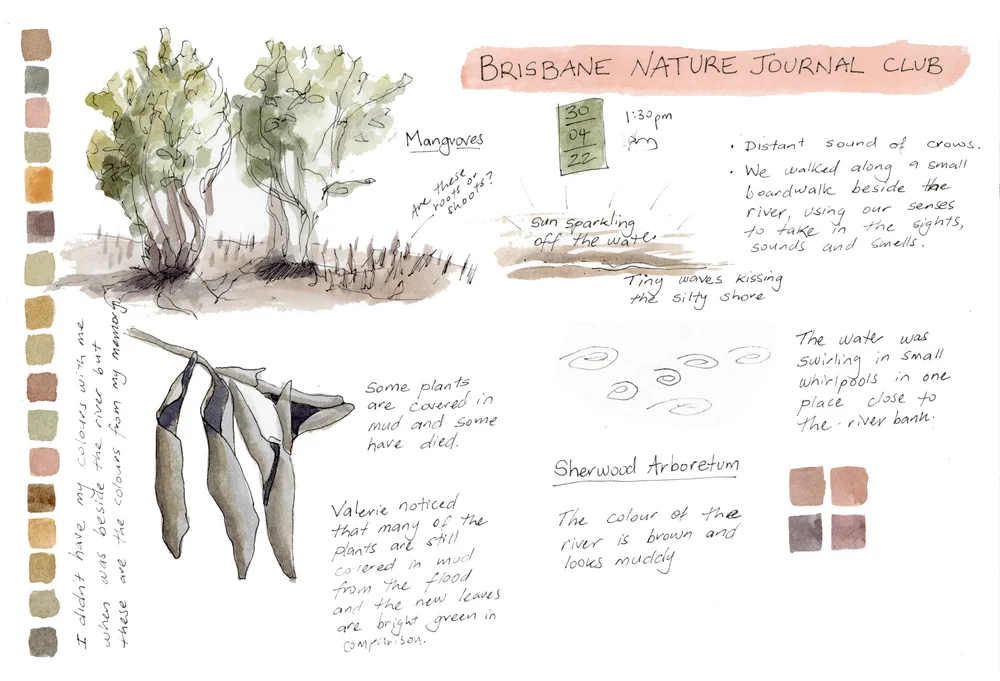 BRISBANE NATURE JOURNAL CLUB
30
04
22
1:30pm
Mangroves
Are these
roots or
shoots?
Sun sparkling
off the water
Tiny waves kissing
the silty shore
• Distant sound of crows.
• We walked along a small
boardwalk beside the
river, using our senses
to take in the sights,
sounds and smells.
The water was
swirling in small
whirlpools in one
place close to
the river bank.
Some plants
are covered in
mud and some
have died.
Valerie noticed
that many of the
plants are still
covered in mud
from the flood
and the new leaves
are bright green in
comparison.
Sherwood Arboretum
The colour of the
river is brown and
looks muddy
I didnt have my colours with me
when I was beside the river but
these are the colours from my memory